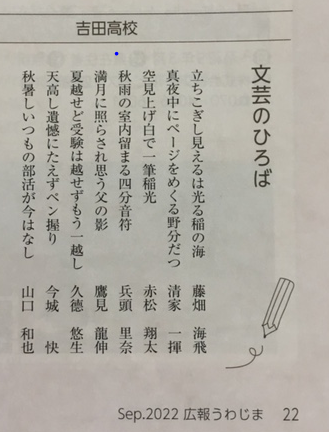 吉田高校
文芸のひろば
立ちこぎし見えるは光る稲の海 藤畑 海飛
真夜中にページをめくる野分だつ 清家 一揮
空見上げ白で一筆稲光 赤松 翔太
秋雨の室内留まる四分音符 兵頭 里奈
満月に照らされ思う父の影 鷹見 龍伸
夏越せど受験は越せずもう一越し 久德 悠生
天高し遺憾にたえずペン握り 今城 快
秋暑しいつもの部活が今はなし 山口 和也
Sep.2022 広報うわじま 22